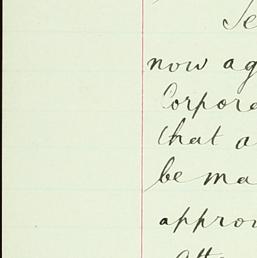 now ag
Corpora
that a
be ma
approv